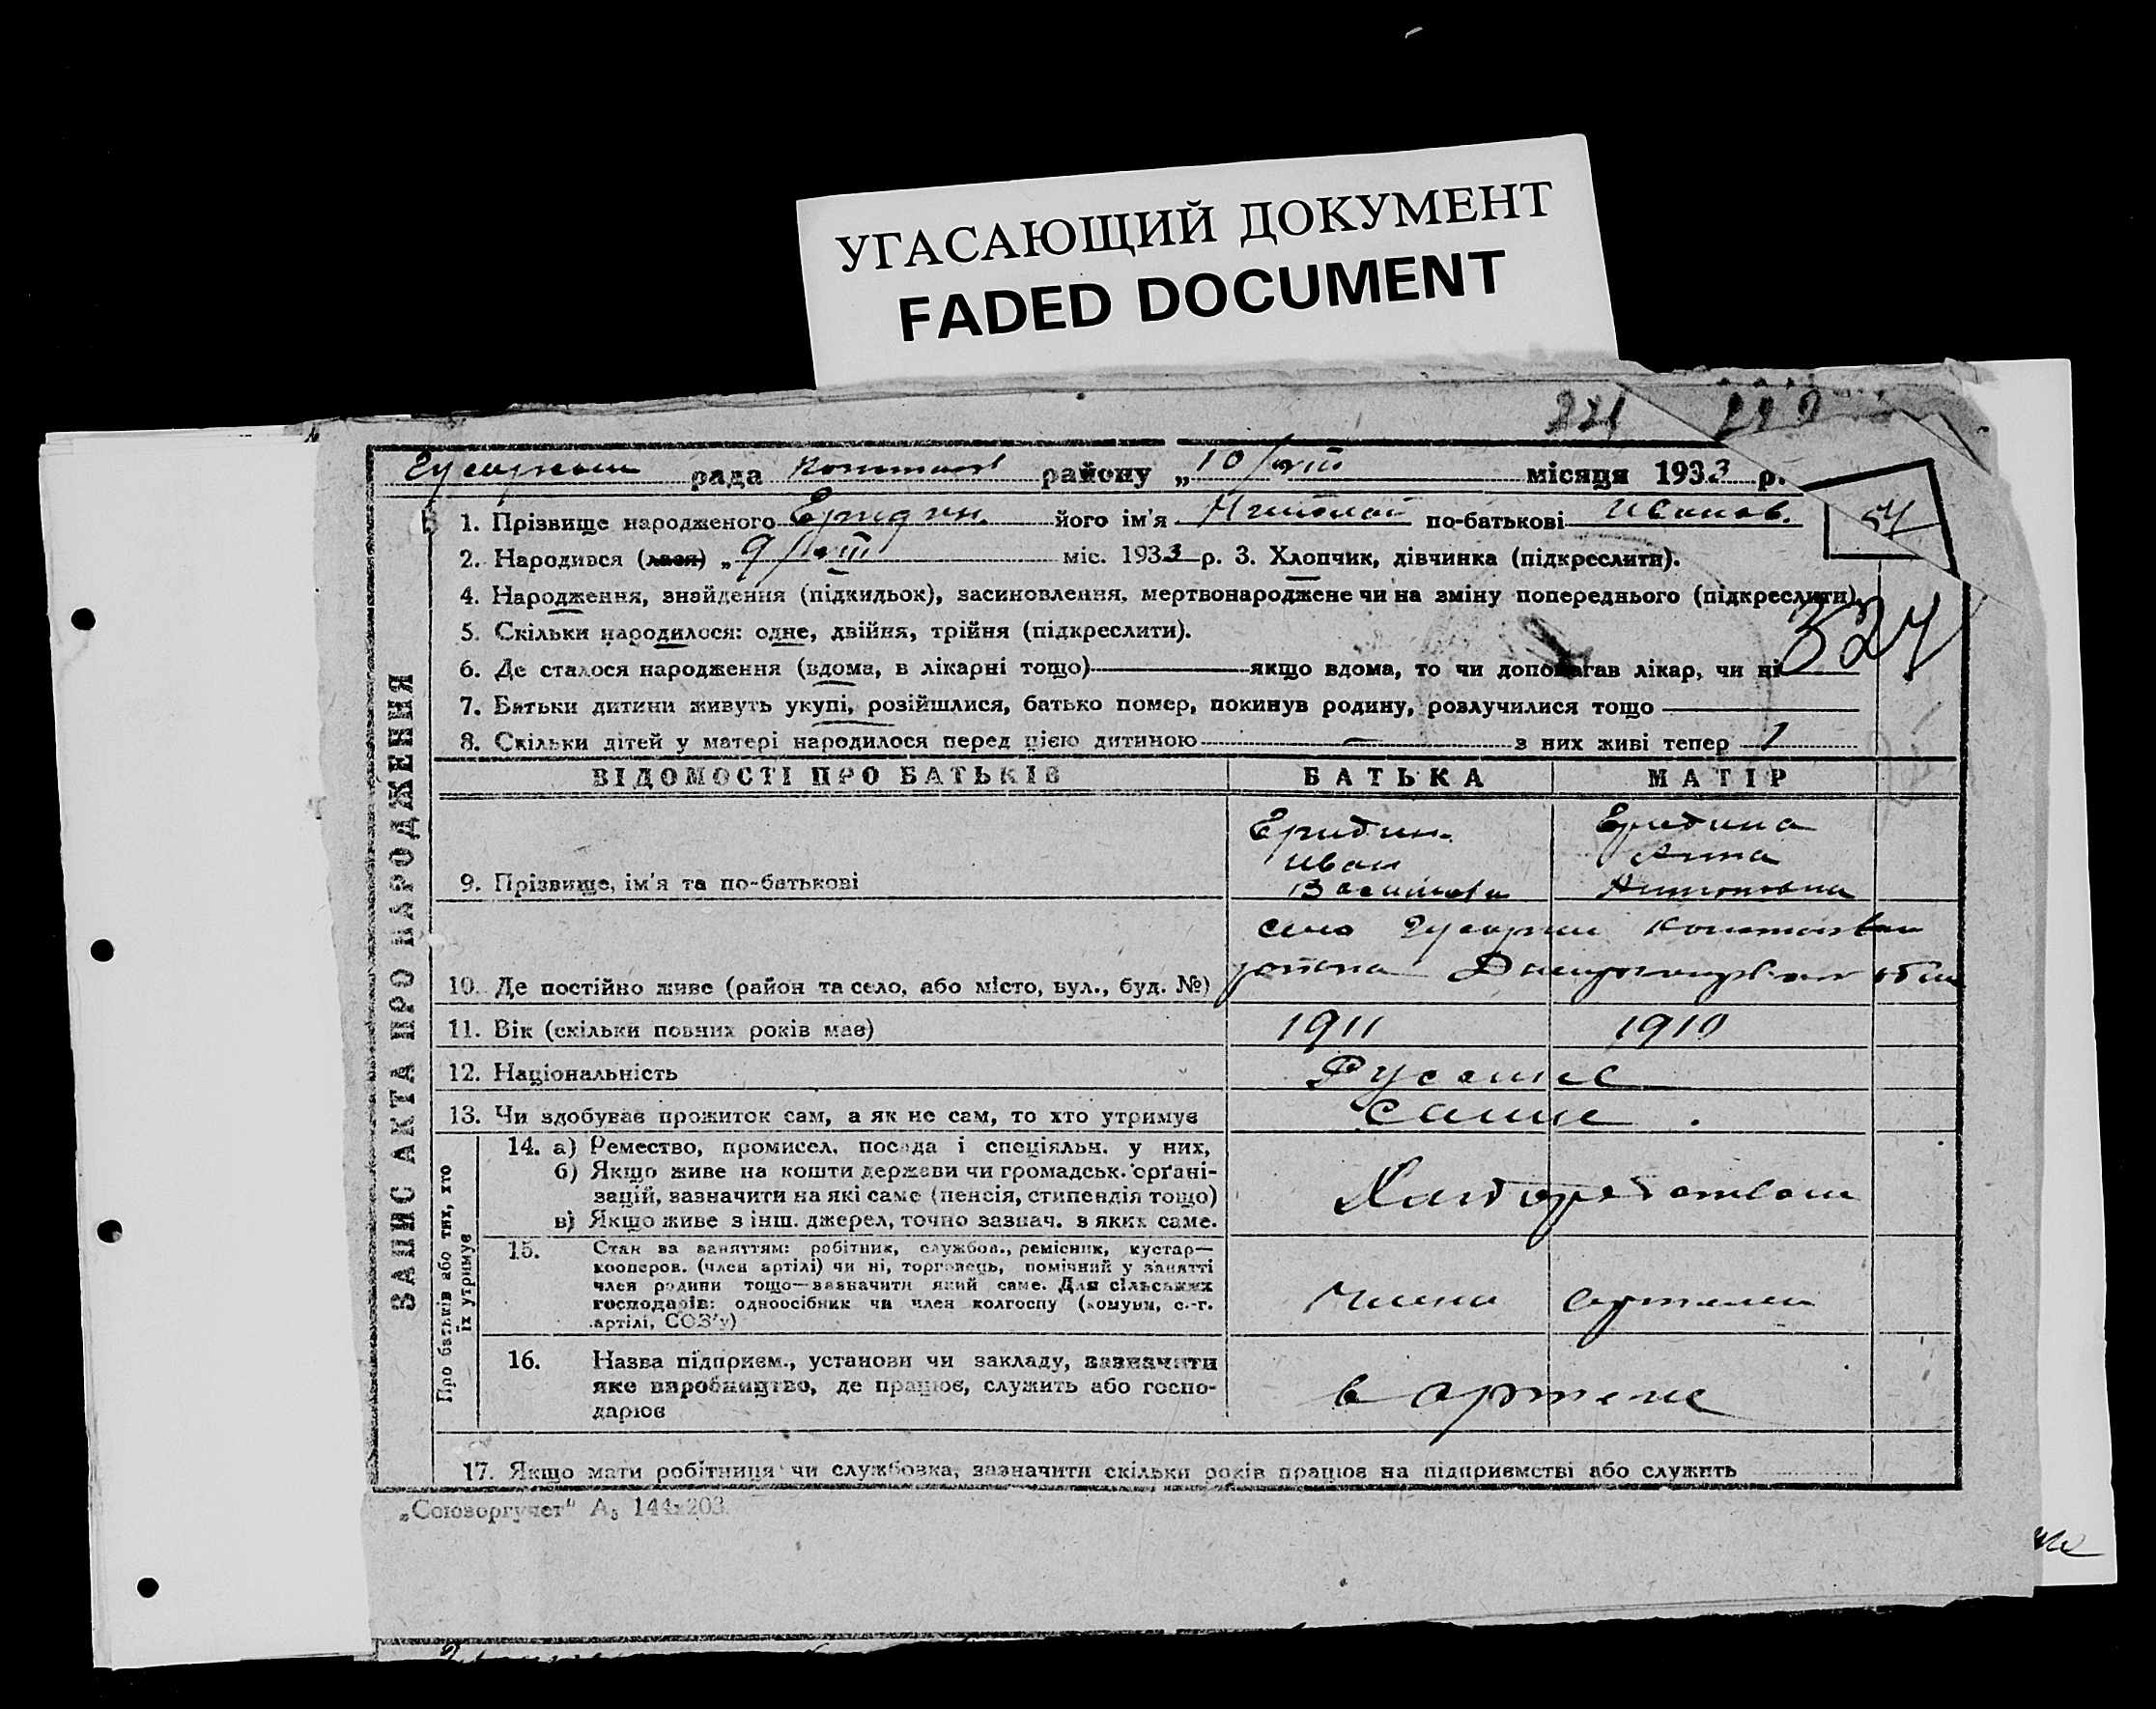 УГАСАЮЩИЙ ДОКУМЕНТ
FADED DOCUMENT
221
рада району „10/VIII місяця 1933 р.
54
1. Прізвище народженого Еридин. його ім'я Николай по-батькові Иванов.
2. Народився (лася) „9/VIII міс. 1933 р. 3. Хлопчик, дівчинка (підкреслити).
4. Народження, знайдення (підкидьок), засиновлення, мертвонароджене чи на зміну попереднього (підкреслити).
327
5. Скільки народилося: одне, двійня, трійня (підкреслити).
6. Де сталося народження (вдома, в лікарні тощо) якщо вдома, то чи допомагав лікар, чи ні
7. Батьки дитини живуть укупі, розійшлися, батько помер, покинув родину, розлучилися тощо
8. Скільки дітей у матері народилося перед цією дитиною — з них живі тепер 1
ЗАПИС АКТА ПРО НАРОДЖЕННЯ
ВІДОМОСТІ ПРО БАТЬКІВ БАТЬКА МАТІР
Еридин. Еридина
Иван Анна
9. Прізвище, ім'я та по-батькові Антоновна
село
10. Де постійно живе (район та село, або місто, вул., буд. №) района обл
11. Вік (скільки повних років має) 1911 1910
12. Національність Русские
13. Чи здобував прожиток сам, а як не сам, то хто утримує Сами.
Про батьків або тих, хто
їх утримує
14. а) Ремество, промисел, посада і спеціяльн. у них,
б) Якщо живе на кошти держави чи громадськ. орґані-
зацій, зазначити на які саме (пенсія, стипендія тощо)
в) Якщо живе з інш. джерел, точно зазнач. з яких саме.
15. Стан за заняттям: робітник, службов., ремісник, кустар—
кооперов. (член артілі) чи ні, торговець, помічний у занятті
член родини тощо—зазначити який саме. Для сільських
господарів: одноосібник чи член колгоспу (комуни, с.-г.
артілі, СОЗ'у)
Члены артели
16. Назва підприєм., установи чи закладу, зазначити
яке виробництво, де працює, служить або госпо-
дарює
в артели
17. Якщо мати робітниця чи службовка, зазначити скільки років працює на підприємстві або служить
„Союзоргучет" А₅ 144х203.